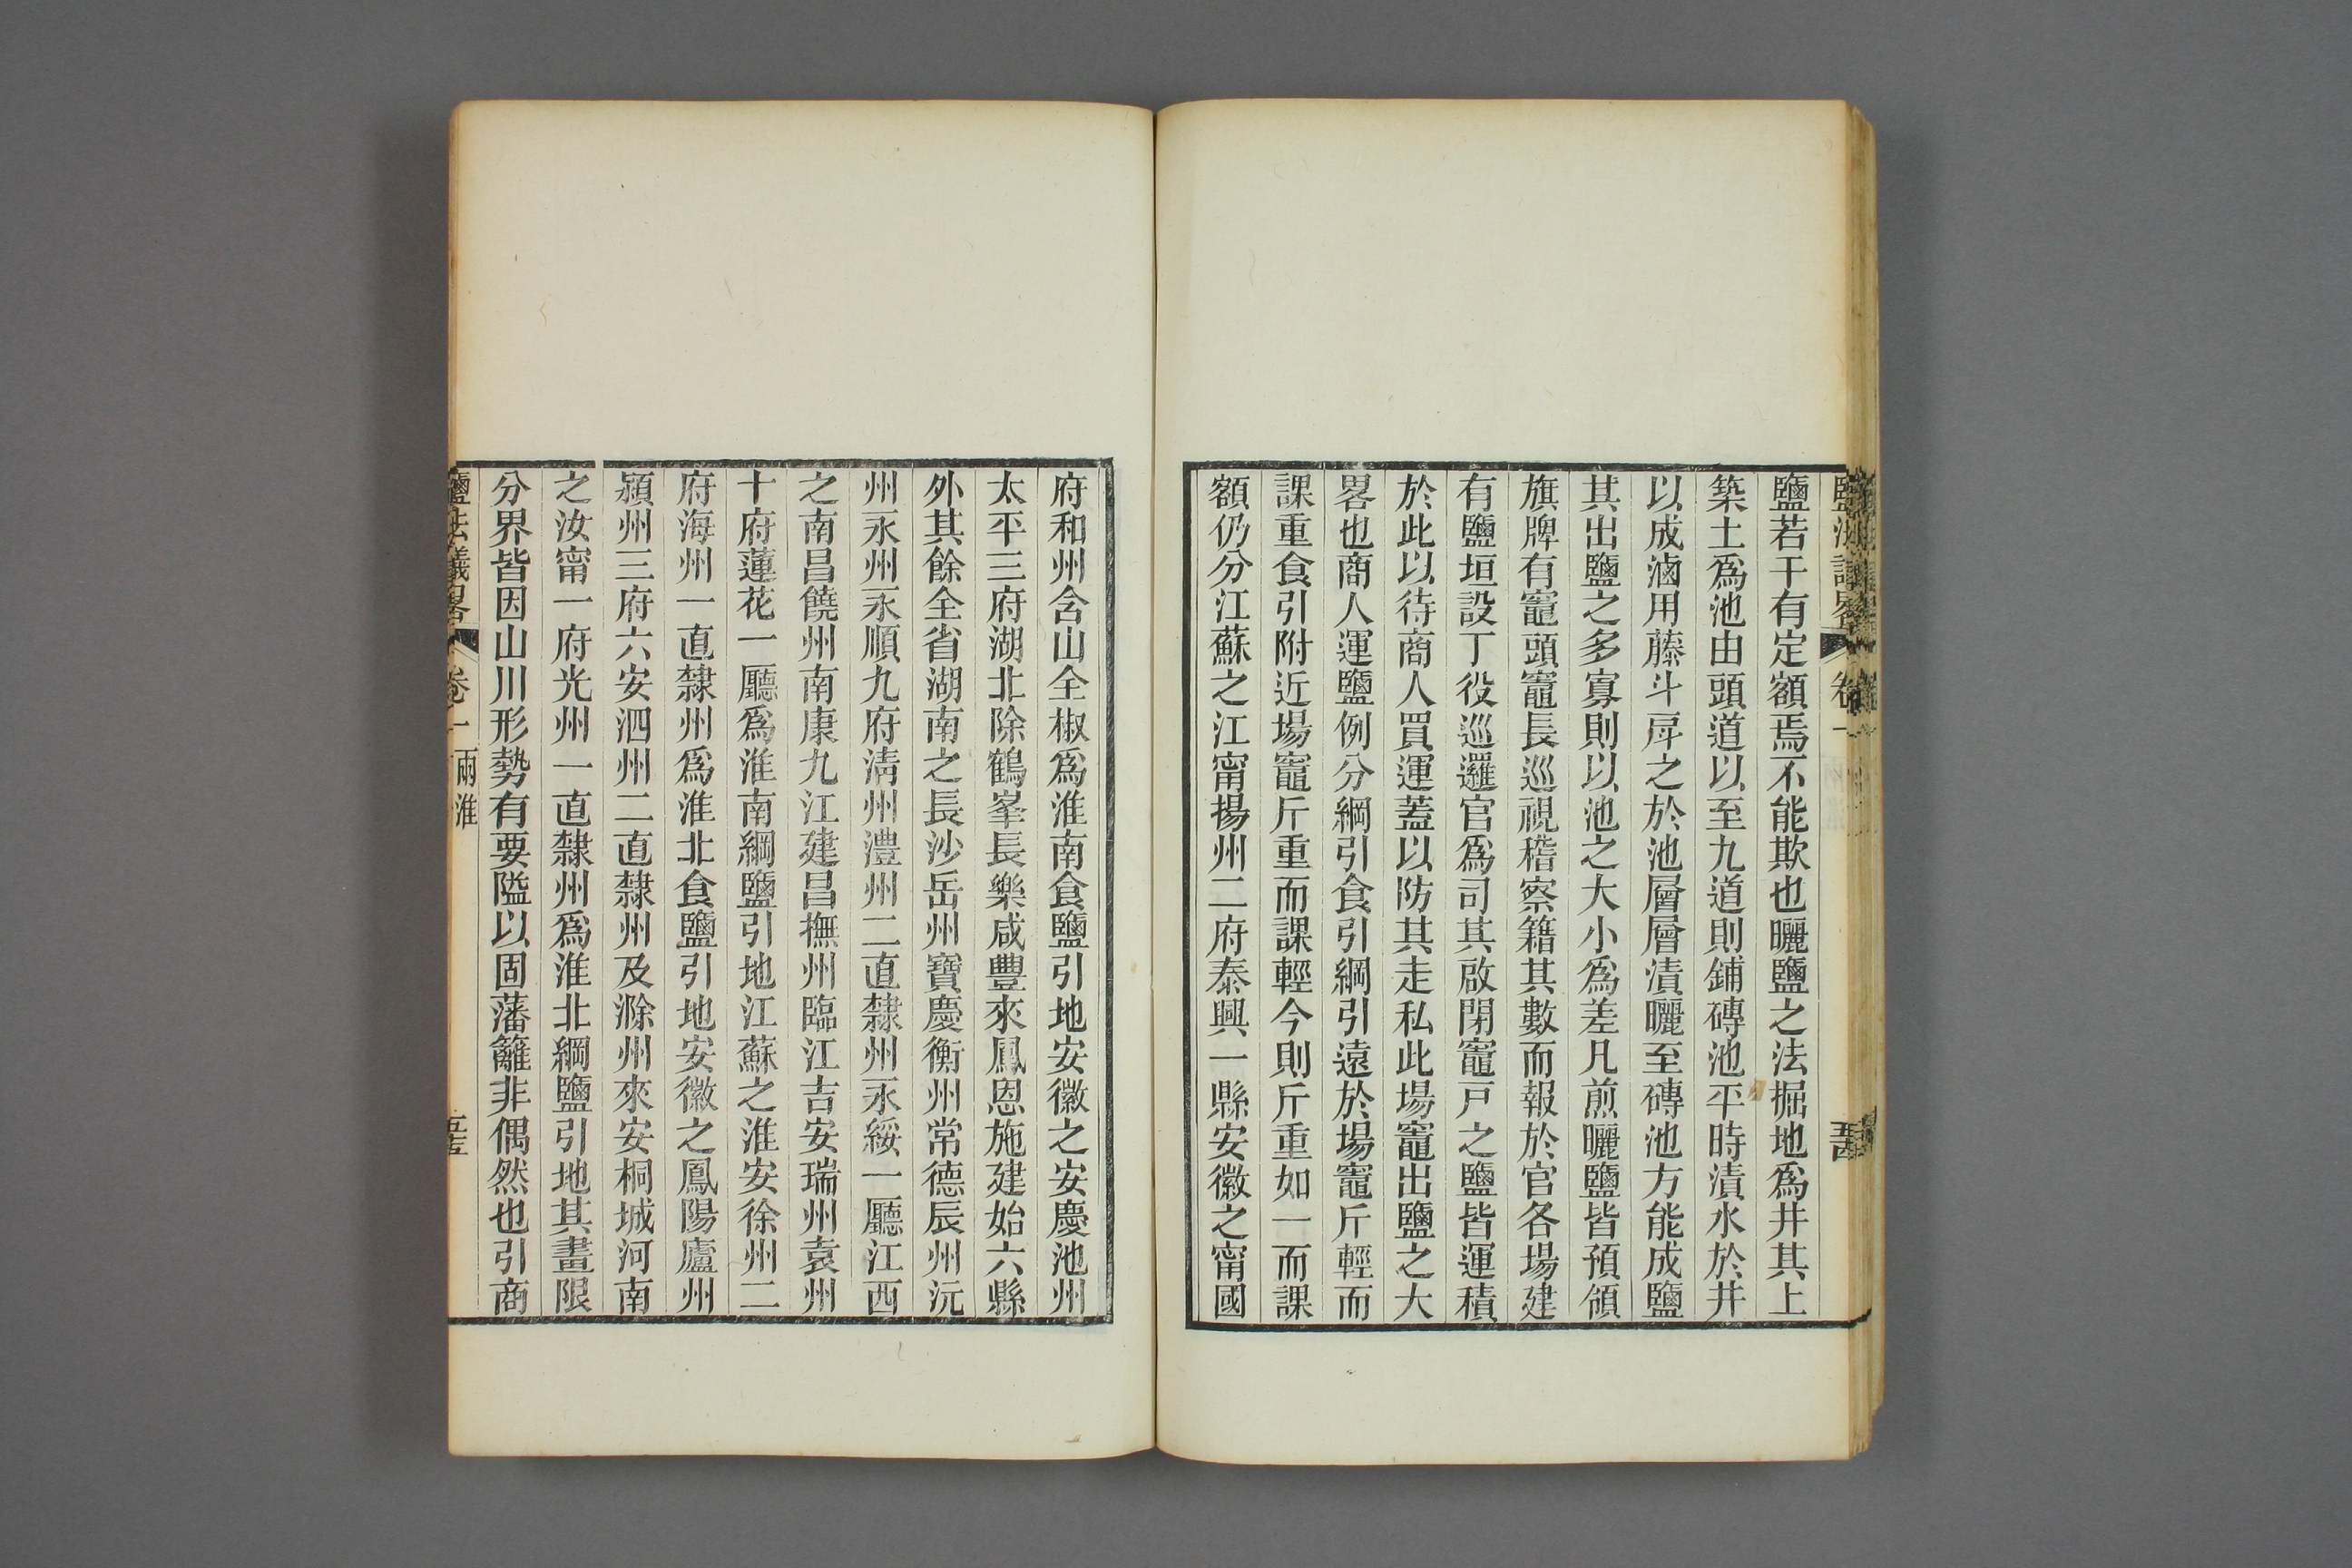 鹽法議畧 卷一
鹽若干有定額焉不能欺也曬鹽之法掘地爲井其上
築土爲池由頭道以至九道則鋪磚池平時漬水於井
以成滷用藤斗戽之於池層層漬曬至磚池方能成鹽
其出鹽之多寡則以池之大小爲差凡煎曬鹽皆預領
旗牌有竈頭竈長巡視稽察籍其數而報於官各場建
有鹽垣設丁役巡邏官爲司其啟閉竈戸之鹽皆運積
於此以待商人買運蓋以防其走私此場竈出鹽之大
畧也商人運鹽例分綱引食引綱引遠於場竈斤輕而
課重食引附近場竈斤重而課輕今則斤重如一而課
額仍分江蘇之江甯揚州二府泰興一縣安徽之甯國
府和州含山全椒爲淮南食鹽引地安徽之安慶池州
太平三府湖北除鶴峯長樂咸豐來鳳恩施建始六縣
外其餘全省湖南之長沙岳州寶慶衡州常德辰州沅
州永州永順九府淸州澧州二直隸州永綏一廳江西
之南昌饒州南康九江建昌撫州臨江吉安瑞州袁州
十府蓮花一廳爲淮南綱鹽引地江蘇之淮安徐州二
府海州一直隸州爲淮北食鹽引地安徽之鳳陽廬州
潁州三府六安泗州二直隸州及滁州來安桐城河南
之汝甯一府光州一直隸州爲淮北綱鹽引地其畫限
分界皆因山川形勢有要隘以固藩籬非偶然也引商
鹽法議畧 卷一 兩淮